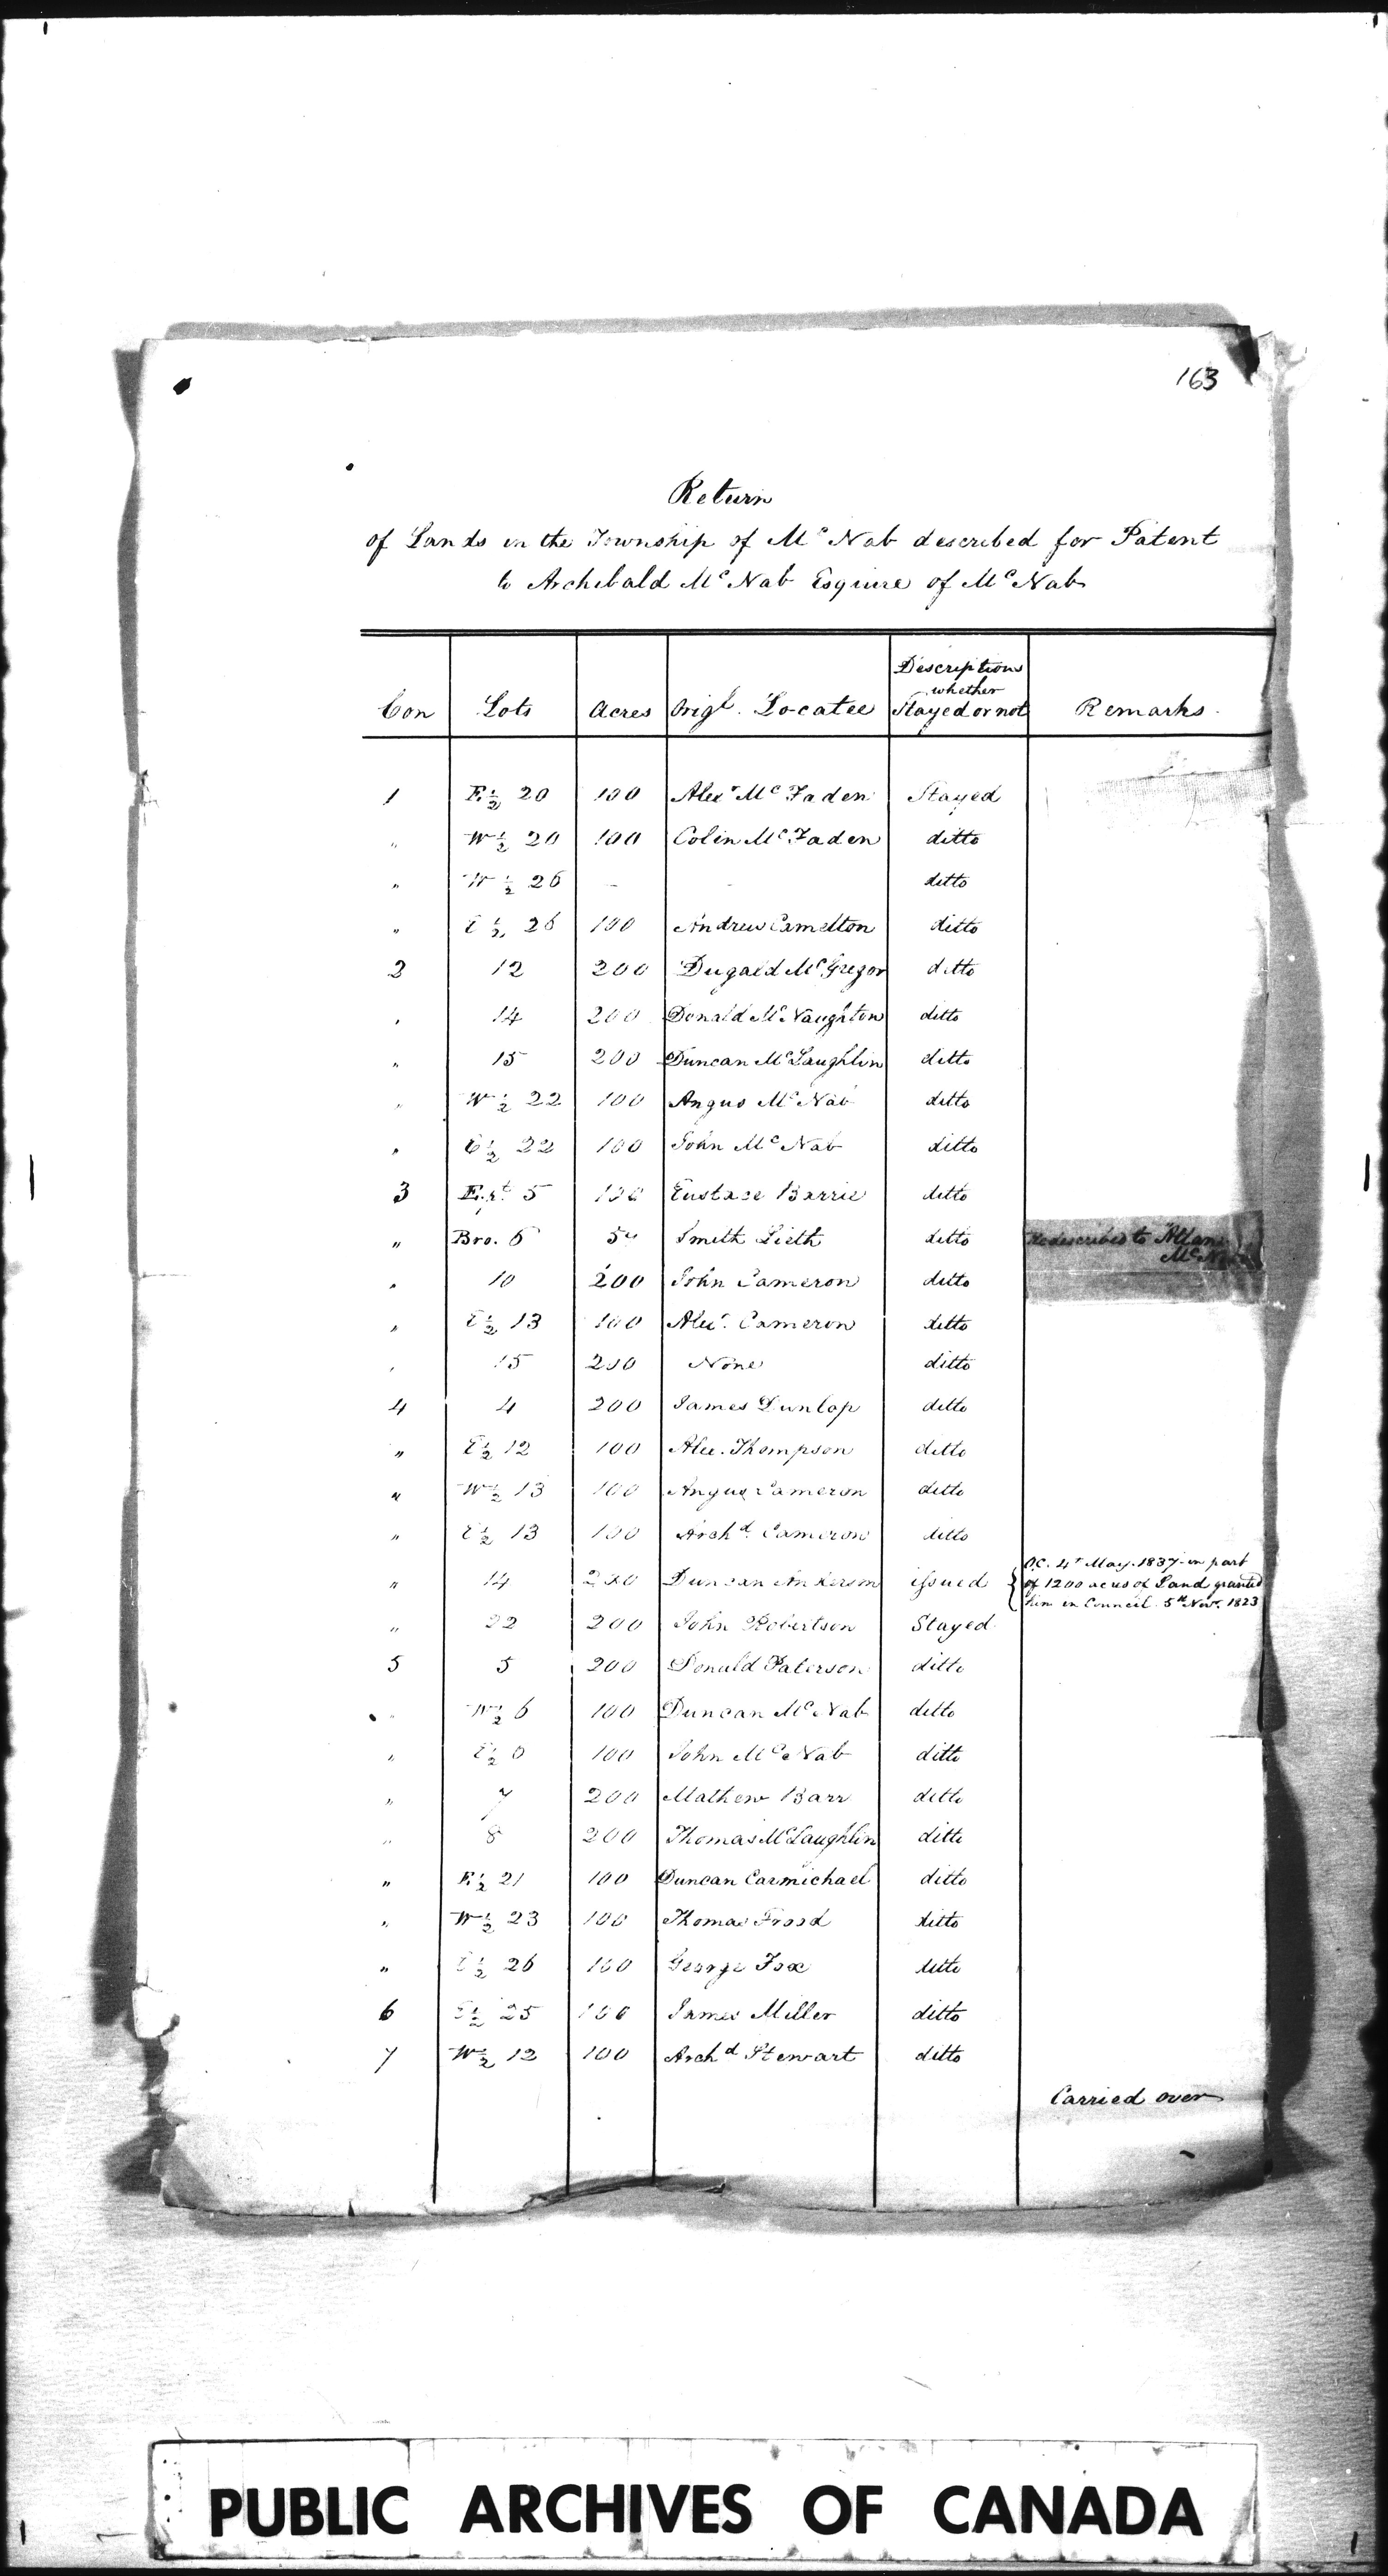 163
Return
of Lands in the Township of Mc Nab described for Patent
to Archibald Mc Nab Esquire of Mc Nab
Con Lots Acres Origl. Locatee Description whether Stayed or not Remarks.
1 E ½ 20 100 Alexr Mc Faden Stayed
" W ½ 20 100 Colin Mc Faden ditto
" W ½ 26 - - ditto
" E ½ 26 100 Andrew Camelton ditto
2 12 200 Dugald Mc Gregor ditto
" 14 200 Donald Mc Naughton ditto
" 15 200 Duncan Mc Laughlin ditto
" W ½ 22 100 Angus Mc Nab ditto
" E ½ 22 100 John Mc Nab ditto
3 E. pt. 5 100 Eustace Barrie ditto
" Bro. 6 Smith Lieth ditto Redescribed to Allan Mc Nab
" 10 200 John Cameron ditto
" E ½ 13 100 Alexr. Cameron ditto
" 15 200 None ditto
4 4 200 James Dunlop ditto
" E ½ 12 100 Alex. Thompson ditto
" W ½ 13 100 Angus Cameron ditto
" E ½ 13 100 Archd. Cameron ditto
" 14 200 Duncan Anderson issued { O.C. 4t May. 1837 - in part
of 1200 acres of Land granted
him in Council. 5th Novr. 1823
" 22 200 John Robertson Stayed.
5 5 200 Donald Paterson ditto
" W ½ 6 100 Duncan Mc Nab ditto
" E ½ 6 100 John Mc Nab ditto
" 7 200 Mathew Barr ditto
" 8 200 Thomas Mc Laughlin ditto
" E ½ 21 100 Duncan Carmichael ditto
" W ½ 23 100 Thomas Frood ditto
" E ½ 26 100 George Fox ditto
6 E ½ 25 100 James Miller ditto
7 W ½ 12 100 Archd Stewart ditto
Carried over
PUBLIC ARCHIVES OF CANADA